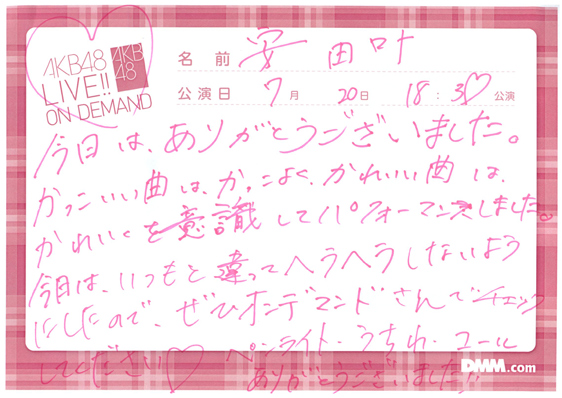 AKB48
LIVE!!
ON DEMAND
AKB
48
名前 安田叶
公演日 7月 20日 18:30公演
今日は、ありがとうございました。
かっこいい曲は、かっこよく、かわいい曲は、
かわいくを意識してパフォーマンスしました。
今日は、いつもと違ってヘラヘラしないよう
にしたので、ぜひオンデマンドさんでチェック
してください♡ ペンライト・うちわ・コール
ありがとうございました!!
DMM.com